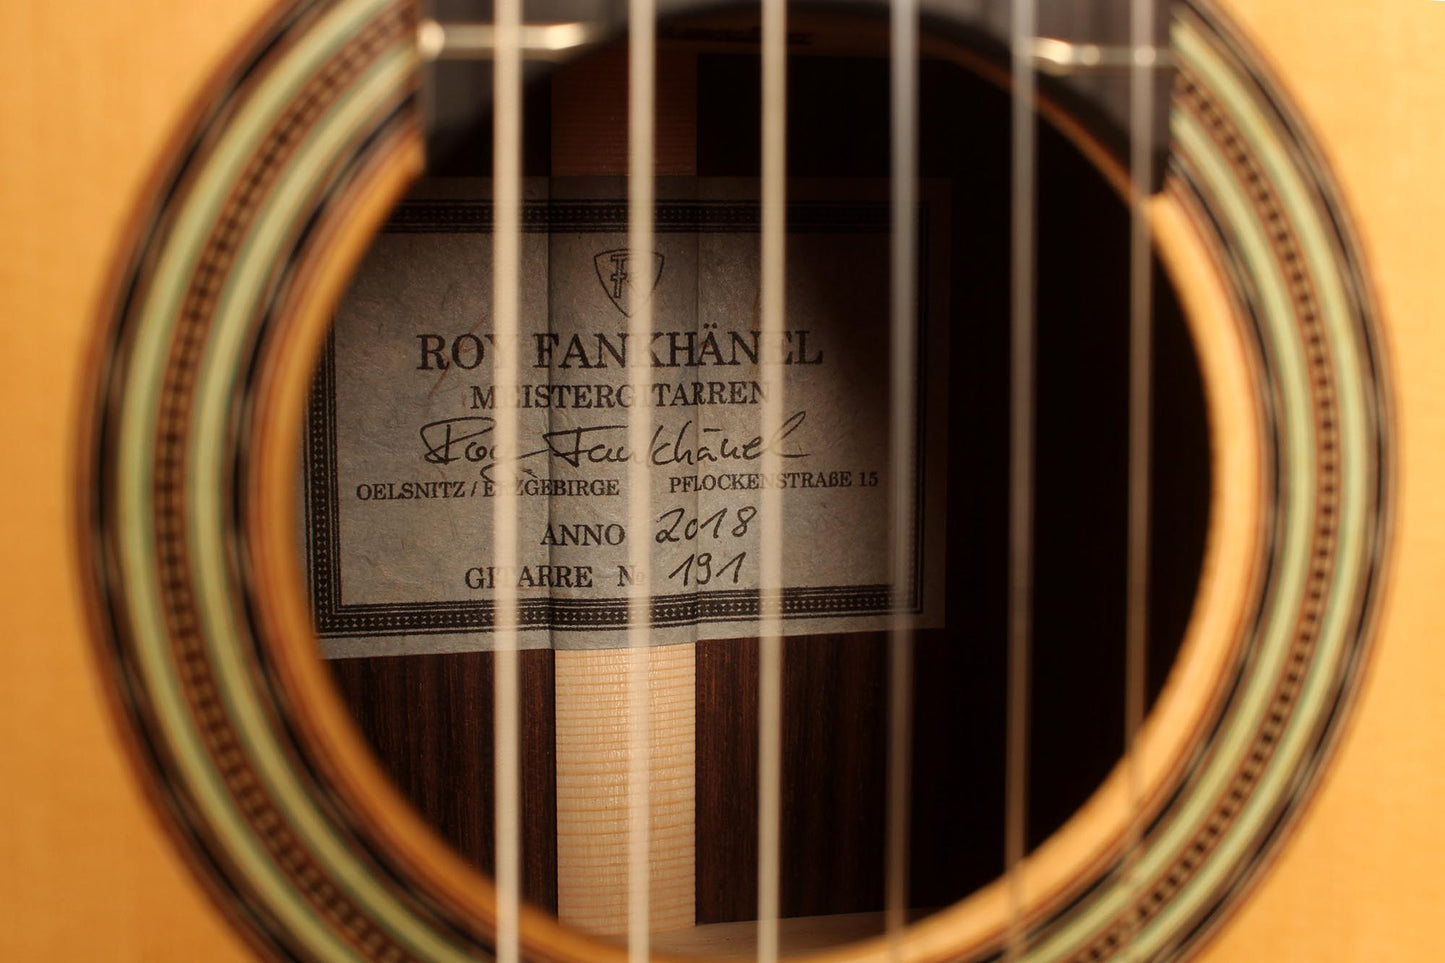 ROY FANKHÄNEL
MEISTERGITARREN
Roy Fankhänel
OELSNITZ / ERZGEBIRGE PFLOCKENSTRAßE 15
ANNO 2018
GITARRE № 191